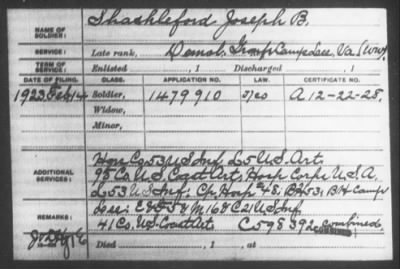 NAME OF SOLDIER: Shackleford Joseph B.
SERVICE: Late rank, Demob. Group Camp Lee, Va (WW).
TERM OF SERVICE: Enlisted , 1 Discharged , 1
DATE OF FILING. CLASS. APPLICATION NO. LAW. CERTIFICATE NO.
1923 Feb 14 Soldier, 1479910 A 12-22-28.
Widow,
Minor,
ADDITIONAL SERVICES: Hon Co. 53 U S Inf. L 5 U.S. Art.
95 Co U.S. Coast Art, Hosp Corps U.S.A,
L 53 U S Inf; Hosp #48; Camp
REMARKS: Lee; E & D 58 M 168 C 21 U S Inf
41 Co. U.S. Coast Art C 598392 combined
Died , 1 , at